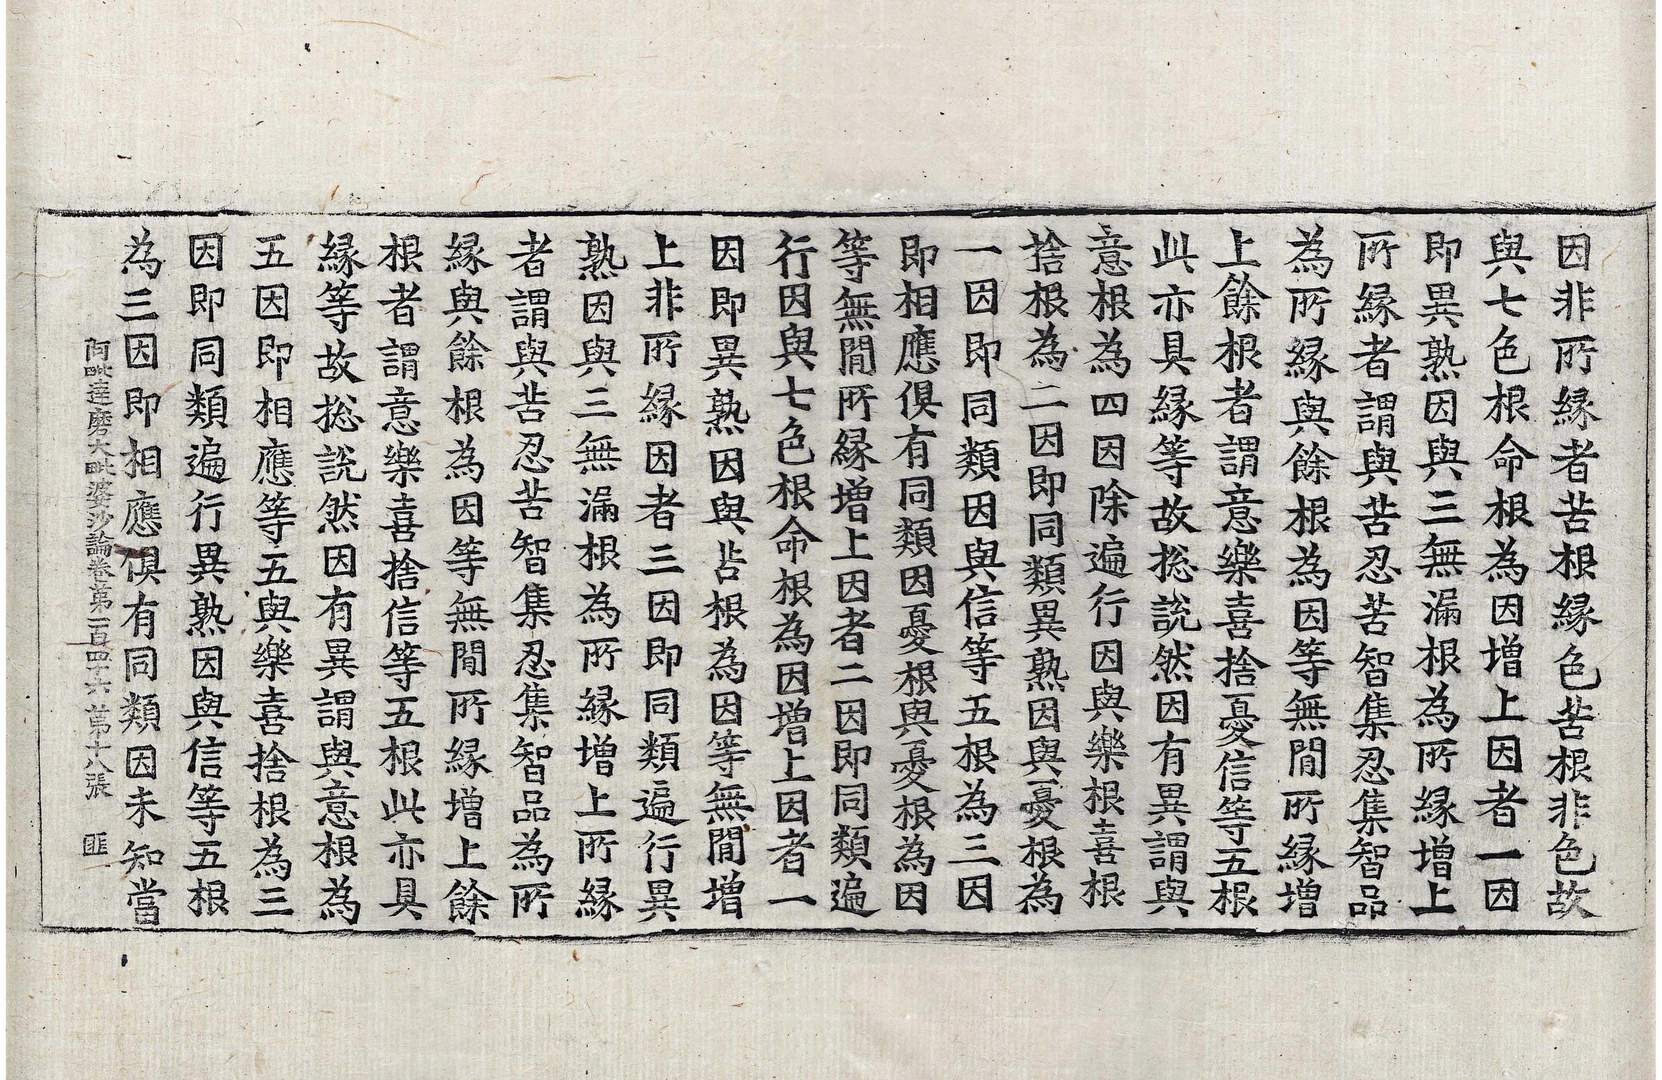 因非所縁者苦根縁色苦根非色故
與七色根命根為因增上因者一因
即異熟因與三無漏根為所縁增上
所縁者謂與苦忍苦智集忍集智品
為所縁與餘根為因等無間所縁增
上餘根者謂意樂喜捨憂信等五根
此亦具縁等故捴說然因有異謂與
意根為四因除遍行因與樂根喜根
捨根為二因即同類異熟因與憂根為
一因即同類因與信等五根為三因
即相應俱有同類因憂根與憂根為因
等無間所縁增上因者二因即同類遍
行因與七色根命根為因增上因者一
因即異熟因與苦根為因等無間增
上非所縁因者三因即同類遍行異
熟因與三無漏根為所縁增上所縁
者謂與苦忍苦智集忍集智品為所
縁與餘根為因等無間所縁增上餘
根者謂意樂喜捨信等五根此亦具
縁等故捴說然因有異謂與意根為
五因即相應等五與樂喜捨根為三
因即同類遍行異熟因與信等五根
為三因即相應俱有同類因未知當
阿毗達磨大毗婆沙論卷第一百四十六 第十八張 匪